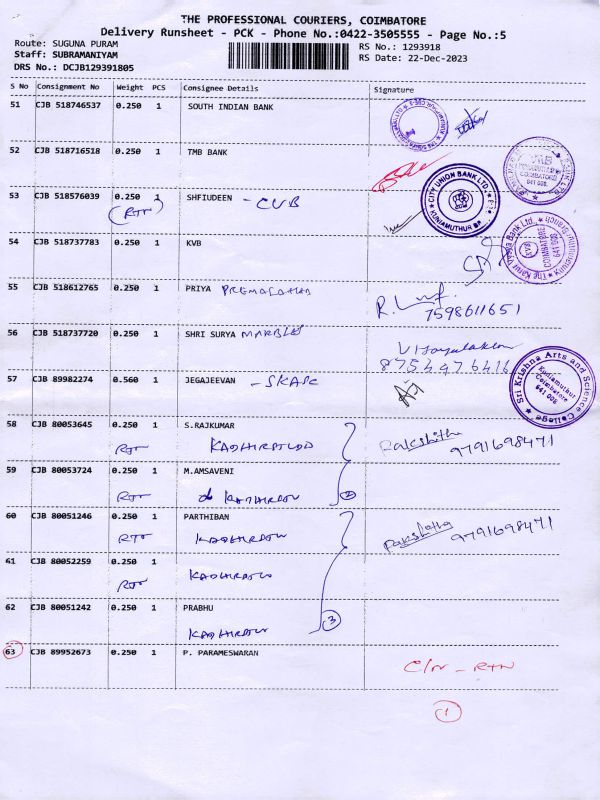 THE PROFESSIONAL COURIERS, COIMBATORE
Delivery Runsheet - PCK - Phone No.:0422-3505555 - Page No.:5
Route: SUGUNA PURAM
RS No.: 1293918
Staff: SUBRAMANIYAM
RS Date: 22-Dec-2023
DRS No.: DCJB129391805
S No Consignment No Weight PCS Consignee Details Signature
51 CJB 518746537 0.250 1 SOUTH INDIAN BANK
52 CJB 518716518 0.250 1 TMB BANK
TMB
COIMBATORE
641 008.
53 CJB 518576039 0.250 1 SHFIUDEEN - CUB
(RTT)
CITY UNION BANK LTD.,
KUNIAMUTHUR BR.
54 CJB 518737783 0.250 1 KVB
The Karur Vysya Bank Ltd., Kuniamuthur Branch
KVB
COIMBATORE
641 008
55 CJB 518612765 0.250 1 PRIYA
R.
7598611651
56 CJB 518737720 0.250 1 SHRI SURYA MARBLES
Vijayalakshmi
8754976416
57 CJB 89982274 0.560 1 JEGAJEEVAN - SKASC
Sri Krishna Arts and Science College
Kuniamuthur
Coimbatore
641 008.
58 CJB 80053645 0.250 1 S.RAJKUMAR
RTT
Rakshitha
9791698471
59 CJB 80053724 0.250 1 M.AMSAVENI
RTT
2
60 CJB 80051246 0.250 1 PARTHIBAN
RTT
Rakshitha
9791698471
61 CJB 80052259 0.250 1
RTT
62 CJB 80051242 0.250 1 PRABHU
3
63 CJB 89952673 0.250 1 P. PARAMESWARAN
C/N - RTN
1